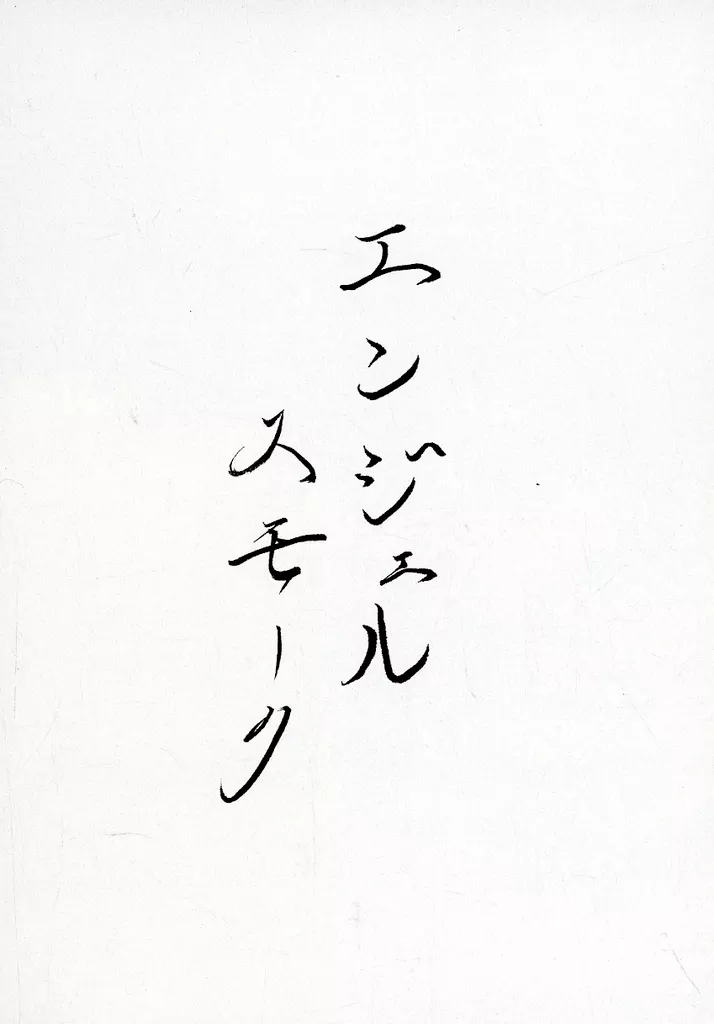 エンジェル
スモーク